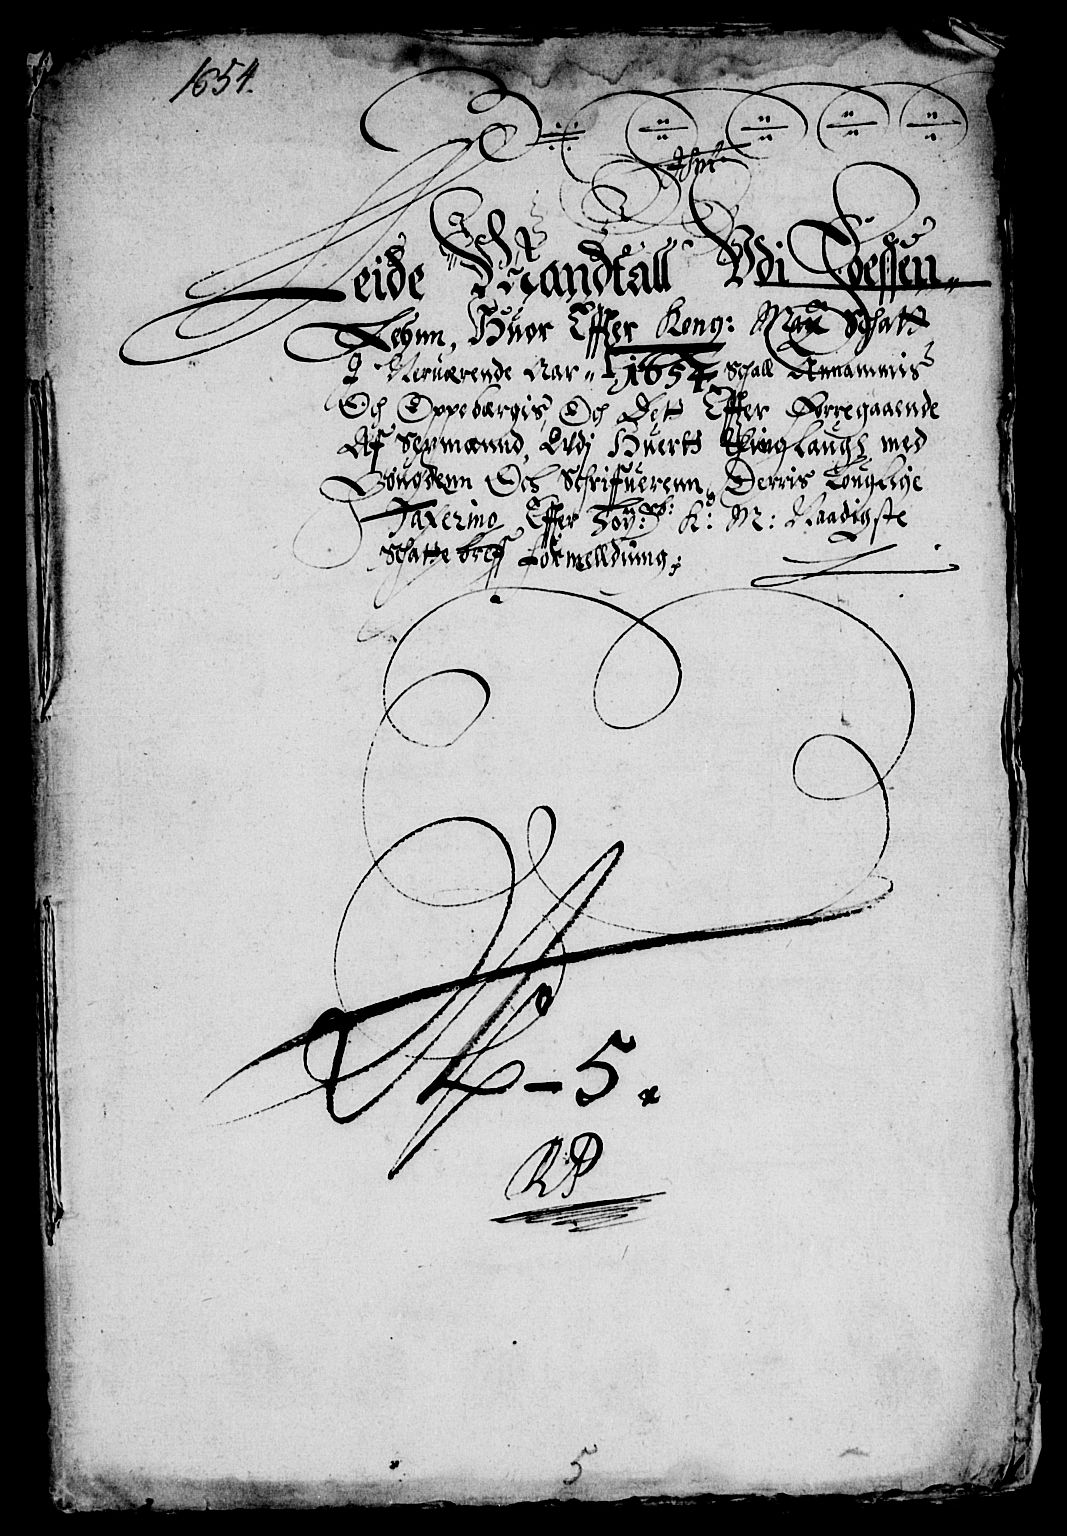 1654.
Leide Mandtall Udi Toessen
Leönn, Huor Effter Kong: Maÿ Schatt
I Neruærende Aar 1654 Schall Annammis
Och Oppebærgis, Och Det Effter Forregaaende
Aff Sexmænnd, Udj Huerts Thinglaugh med
Bongdenn Och Schrifuerenn, Derris Touglige
Taxering Effter Höÿ: K: M: Naadigste
Schatte breff Formelldüing;
- 5.
RP
5